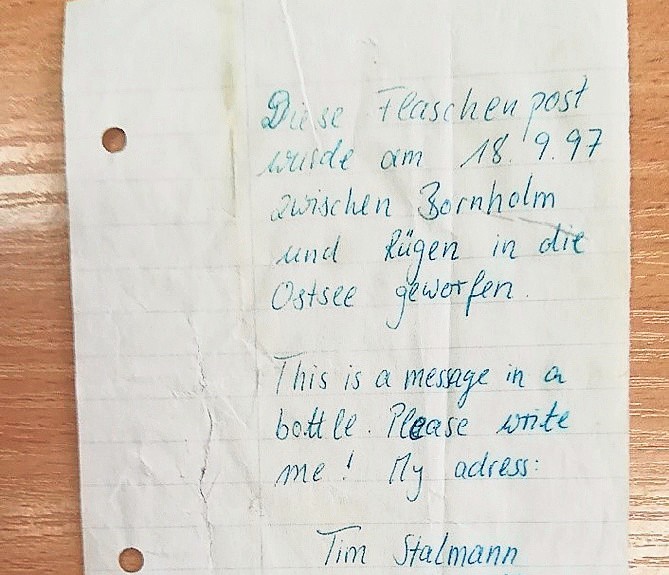 Diese Flaschenpost
wurde am 18.9.97
zwischen Bornholm
und Rügen in die
Ostsee geworfen.
This is a message in a
bottle. Please write
me! My adress:
Tim Stalmann